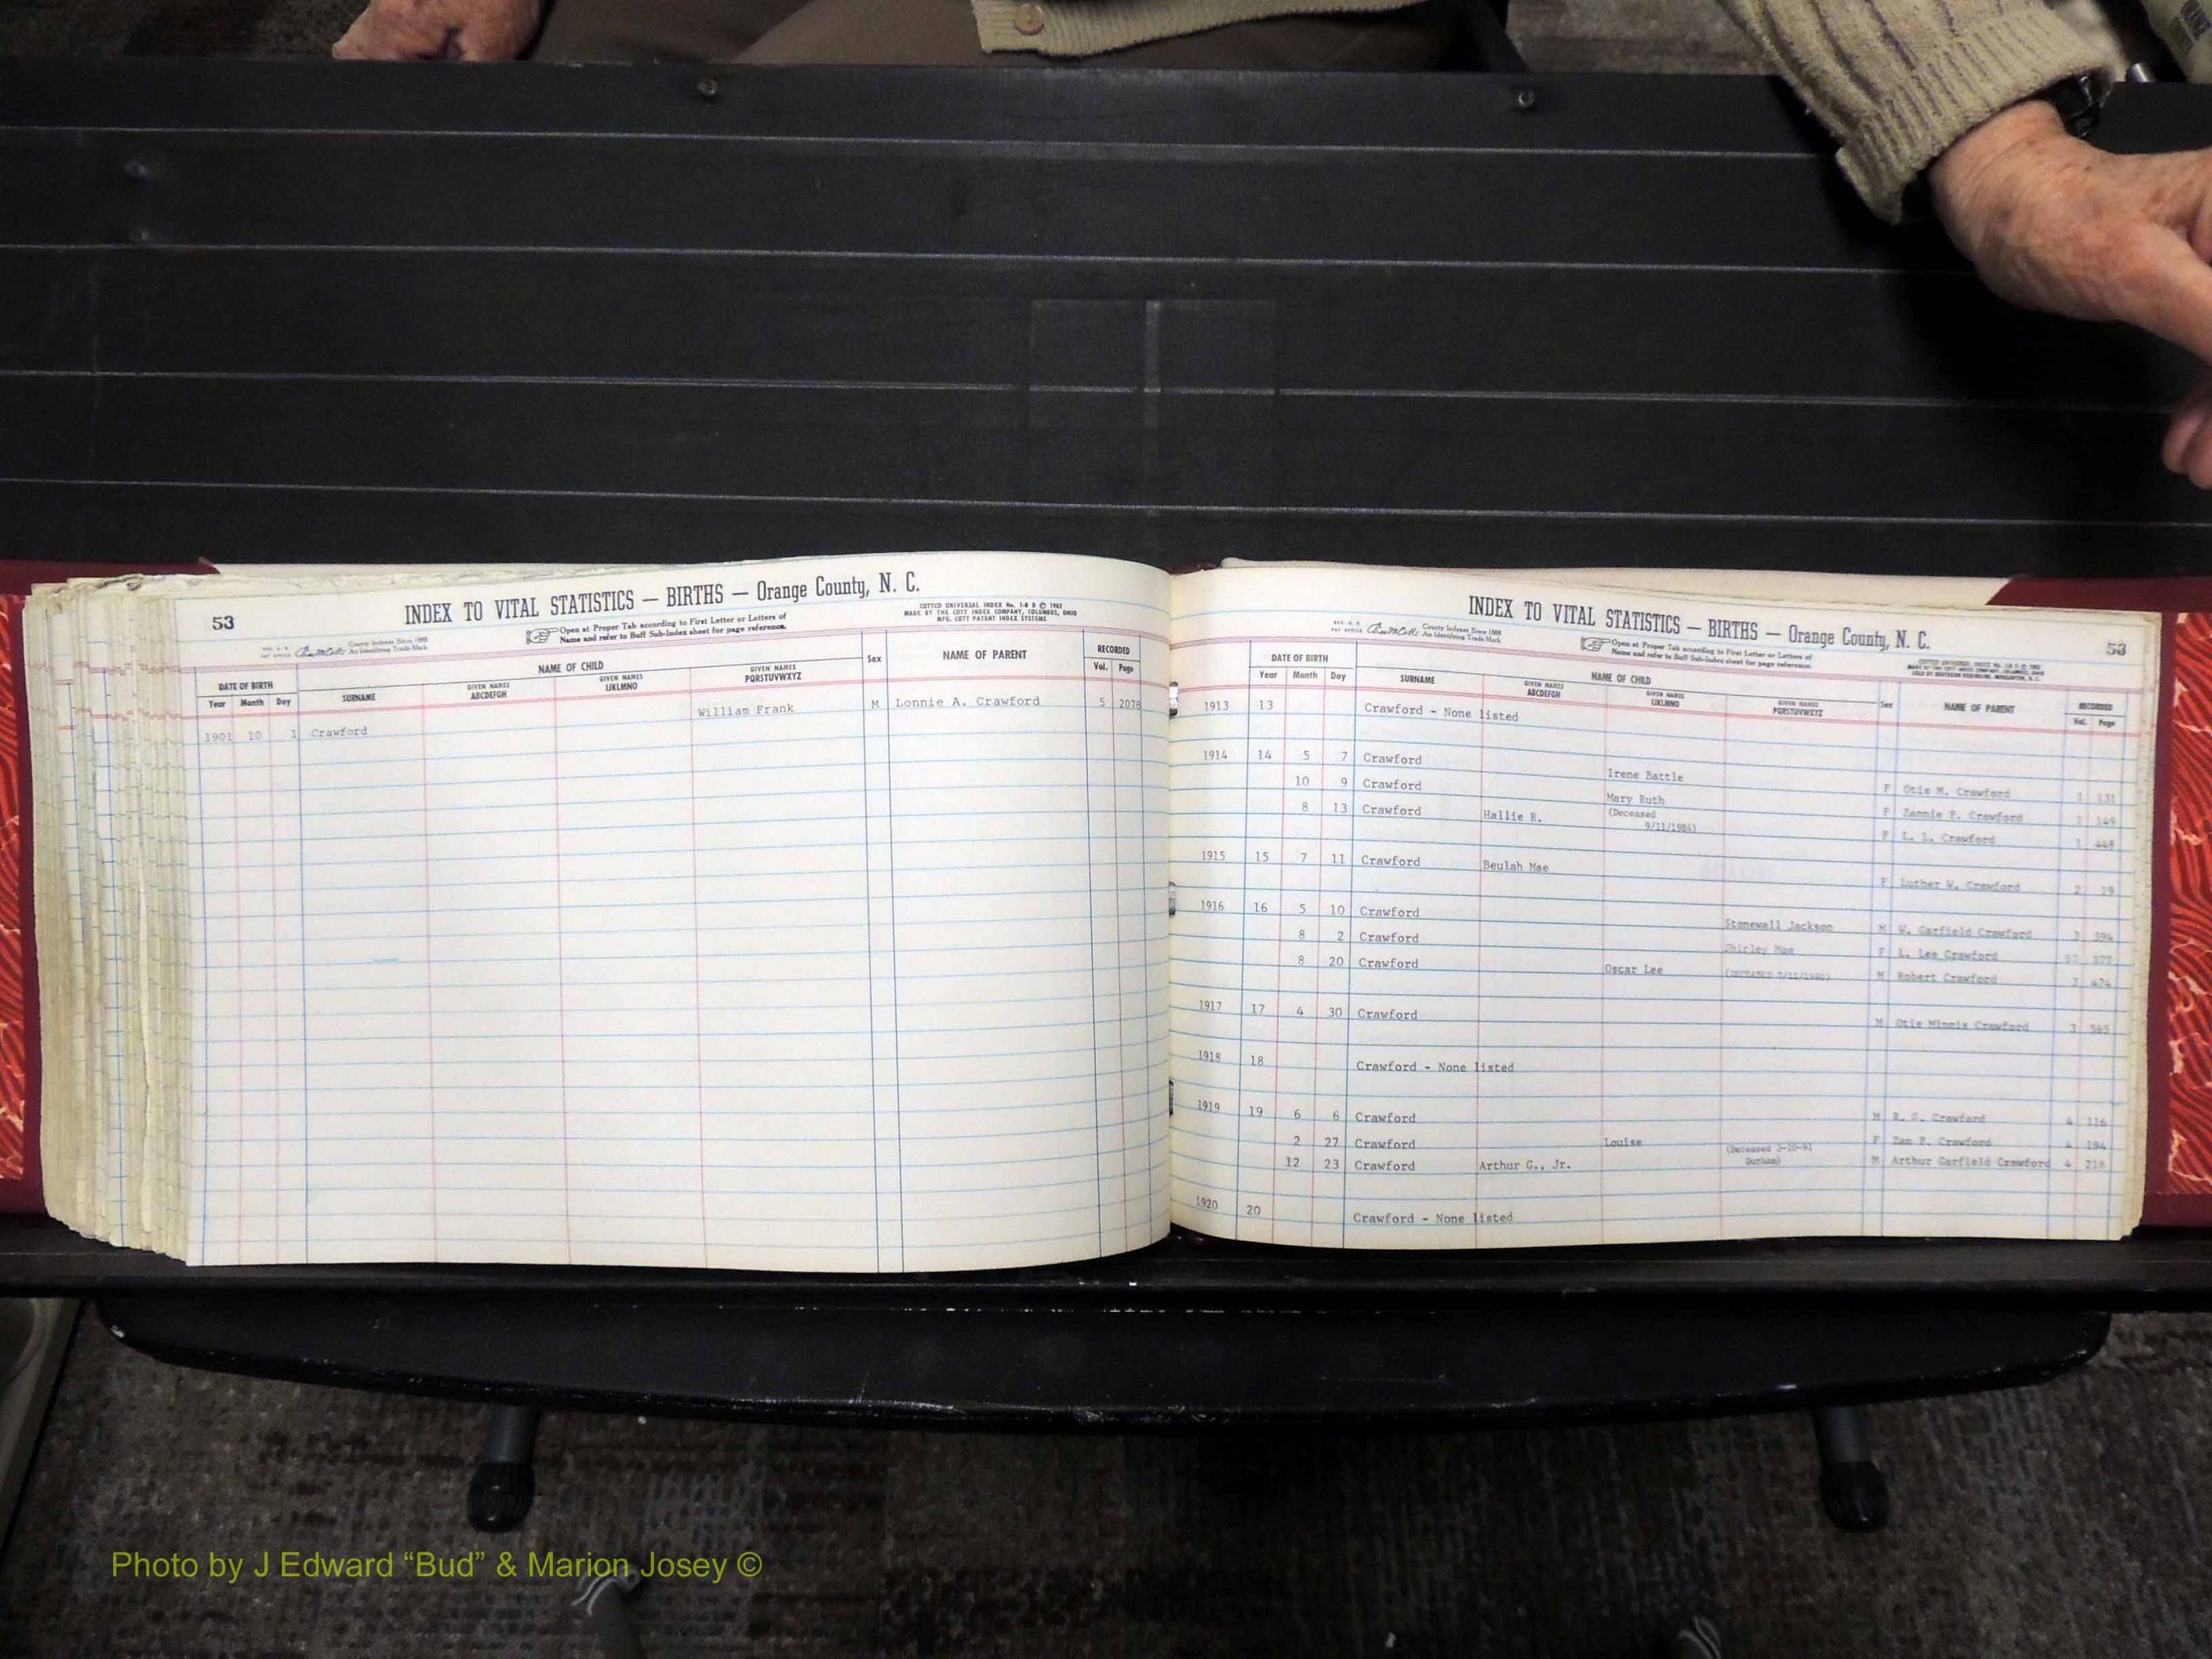 53
INDEX TO VITAL STATISTICS — BIRTHS — Orange County, N. C.
COTTCO UNIVERSAL INDEX No. 1-B D © 1962
MADE BY THE COTT INDEX COMPANY, COLUMBUS, OHIO
MFG. COTT PATENT INDEX SYSTEMS
Open at Proper Tab according to First Letter or Letters of
Name and refer to Buff Sub-Index sheet for page reference.
County Indexes Since 1888
An Identifying Trade Mark
DATE OF BIRTH NAME OF CHILD Sex NAME OF PARENT RECORDED
Year Month Day SURNAME GIVEN NAMES ABCDEFGH GIVEN NAMES IJKLMNO GIVEN NAMES PQRSTUVWXYZ Vol. Page
1901 10 1 Crawford William Frank M Lonnie A. Crawford 5 2078
INDEX TO VITAL STATISTICS — BIRTHS — Orange County, N. C.
53
County Indexes Since 1888
An Identifying Trade Mark
Open at Proper Tab according to First Letter or Letters of
Name and refer to Buff Sub-Index sheet for page reference.
DATE OF BIRTH NAME OF CHILD Sex NAME OF PARENT RECORDED
Year Month Day SURNAME GIVEN NAMES ABCDEFGH GIVEN NAMES IJKLMNO GIVEN NAMES PQRSTUVWXYZ Vol. Page
1913 13 Crawford - None listed
1914 14 5 7 Crawford Irene Battle F Otis M. Crawford 1 131
10 9 Crawford Mary Ruth F Zannie P. Crawford 1 149
8 13 Crawford Hallie R. (Deceased 9/11/1984) F L. L. Crawford 1 448
1915 15 7 11 Crawford Beulah Mae F Luther W. Crawford 2 19
1916 16 5 10 Crawford Stonewall Jackson M W. Garfield Crawford 3 394
8 2 Crawford Shirley Mae F L. Lee Crawford
8 20 Crawford Oscar Lee M Robert Crawford 3 474
1917 17 4 30 Crawford M Otis Minnis Crawford 3 565
1918 18 Crawford - None listed
1919 19 6 6 Crawford M R. G. Crawford 4 116
2 27 Crawford Louise (Deceased 3-20-91 F Zan P. Crawford 4 194
Durham)
12 23 Crawford Arthur G., Jr. M Arthur Garfield Crawford 4 218
1920 20 Crawford - None listed
Photo by J Edward “Bud” & Marion Josey ©